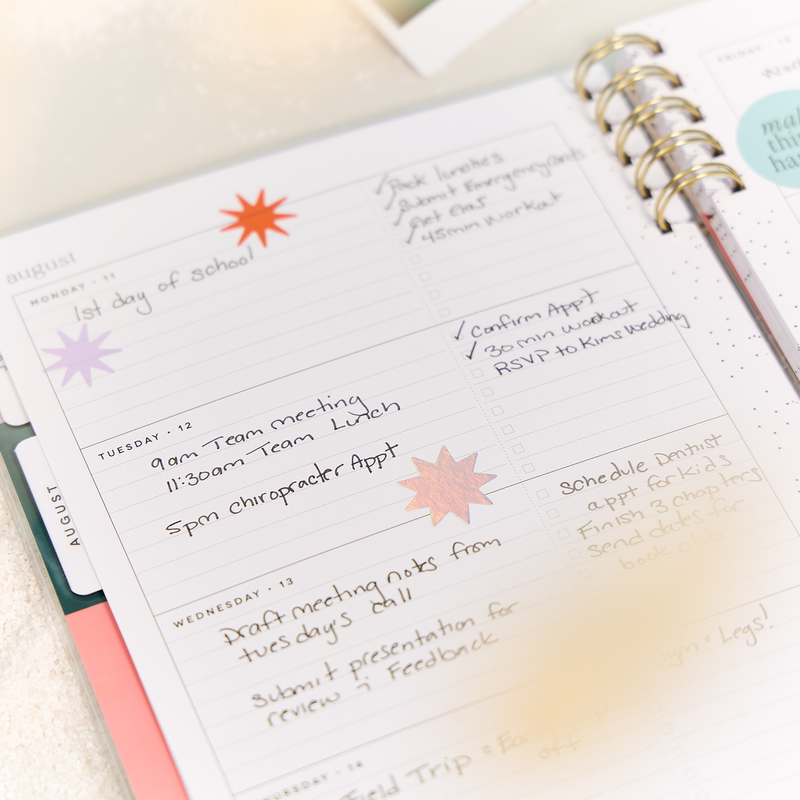 august
MONDAY • 11
1st day of school
Pack lunches
Submit Emergency cards
Get Gas
45min workout
TUESDAY • 12
9am Team meeting
11:30am Team Lunch
5pm Chiropracter Appt
Confirm Appt
30 min workout
RSVP to Kims Wedding
WEDNESDAY • 13
Draft meeting notes from
tuesday's call
Submit presentation for
review + Feedback
Schedule Dentist
appt for Kids
Finish 3 chapters
send dates for
book club
THURSDAY • 14
Field Trip =
off
gym = Legs!
AUGUST
FRIDAY • 15